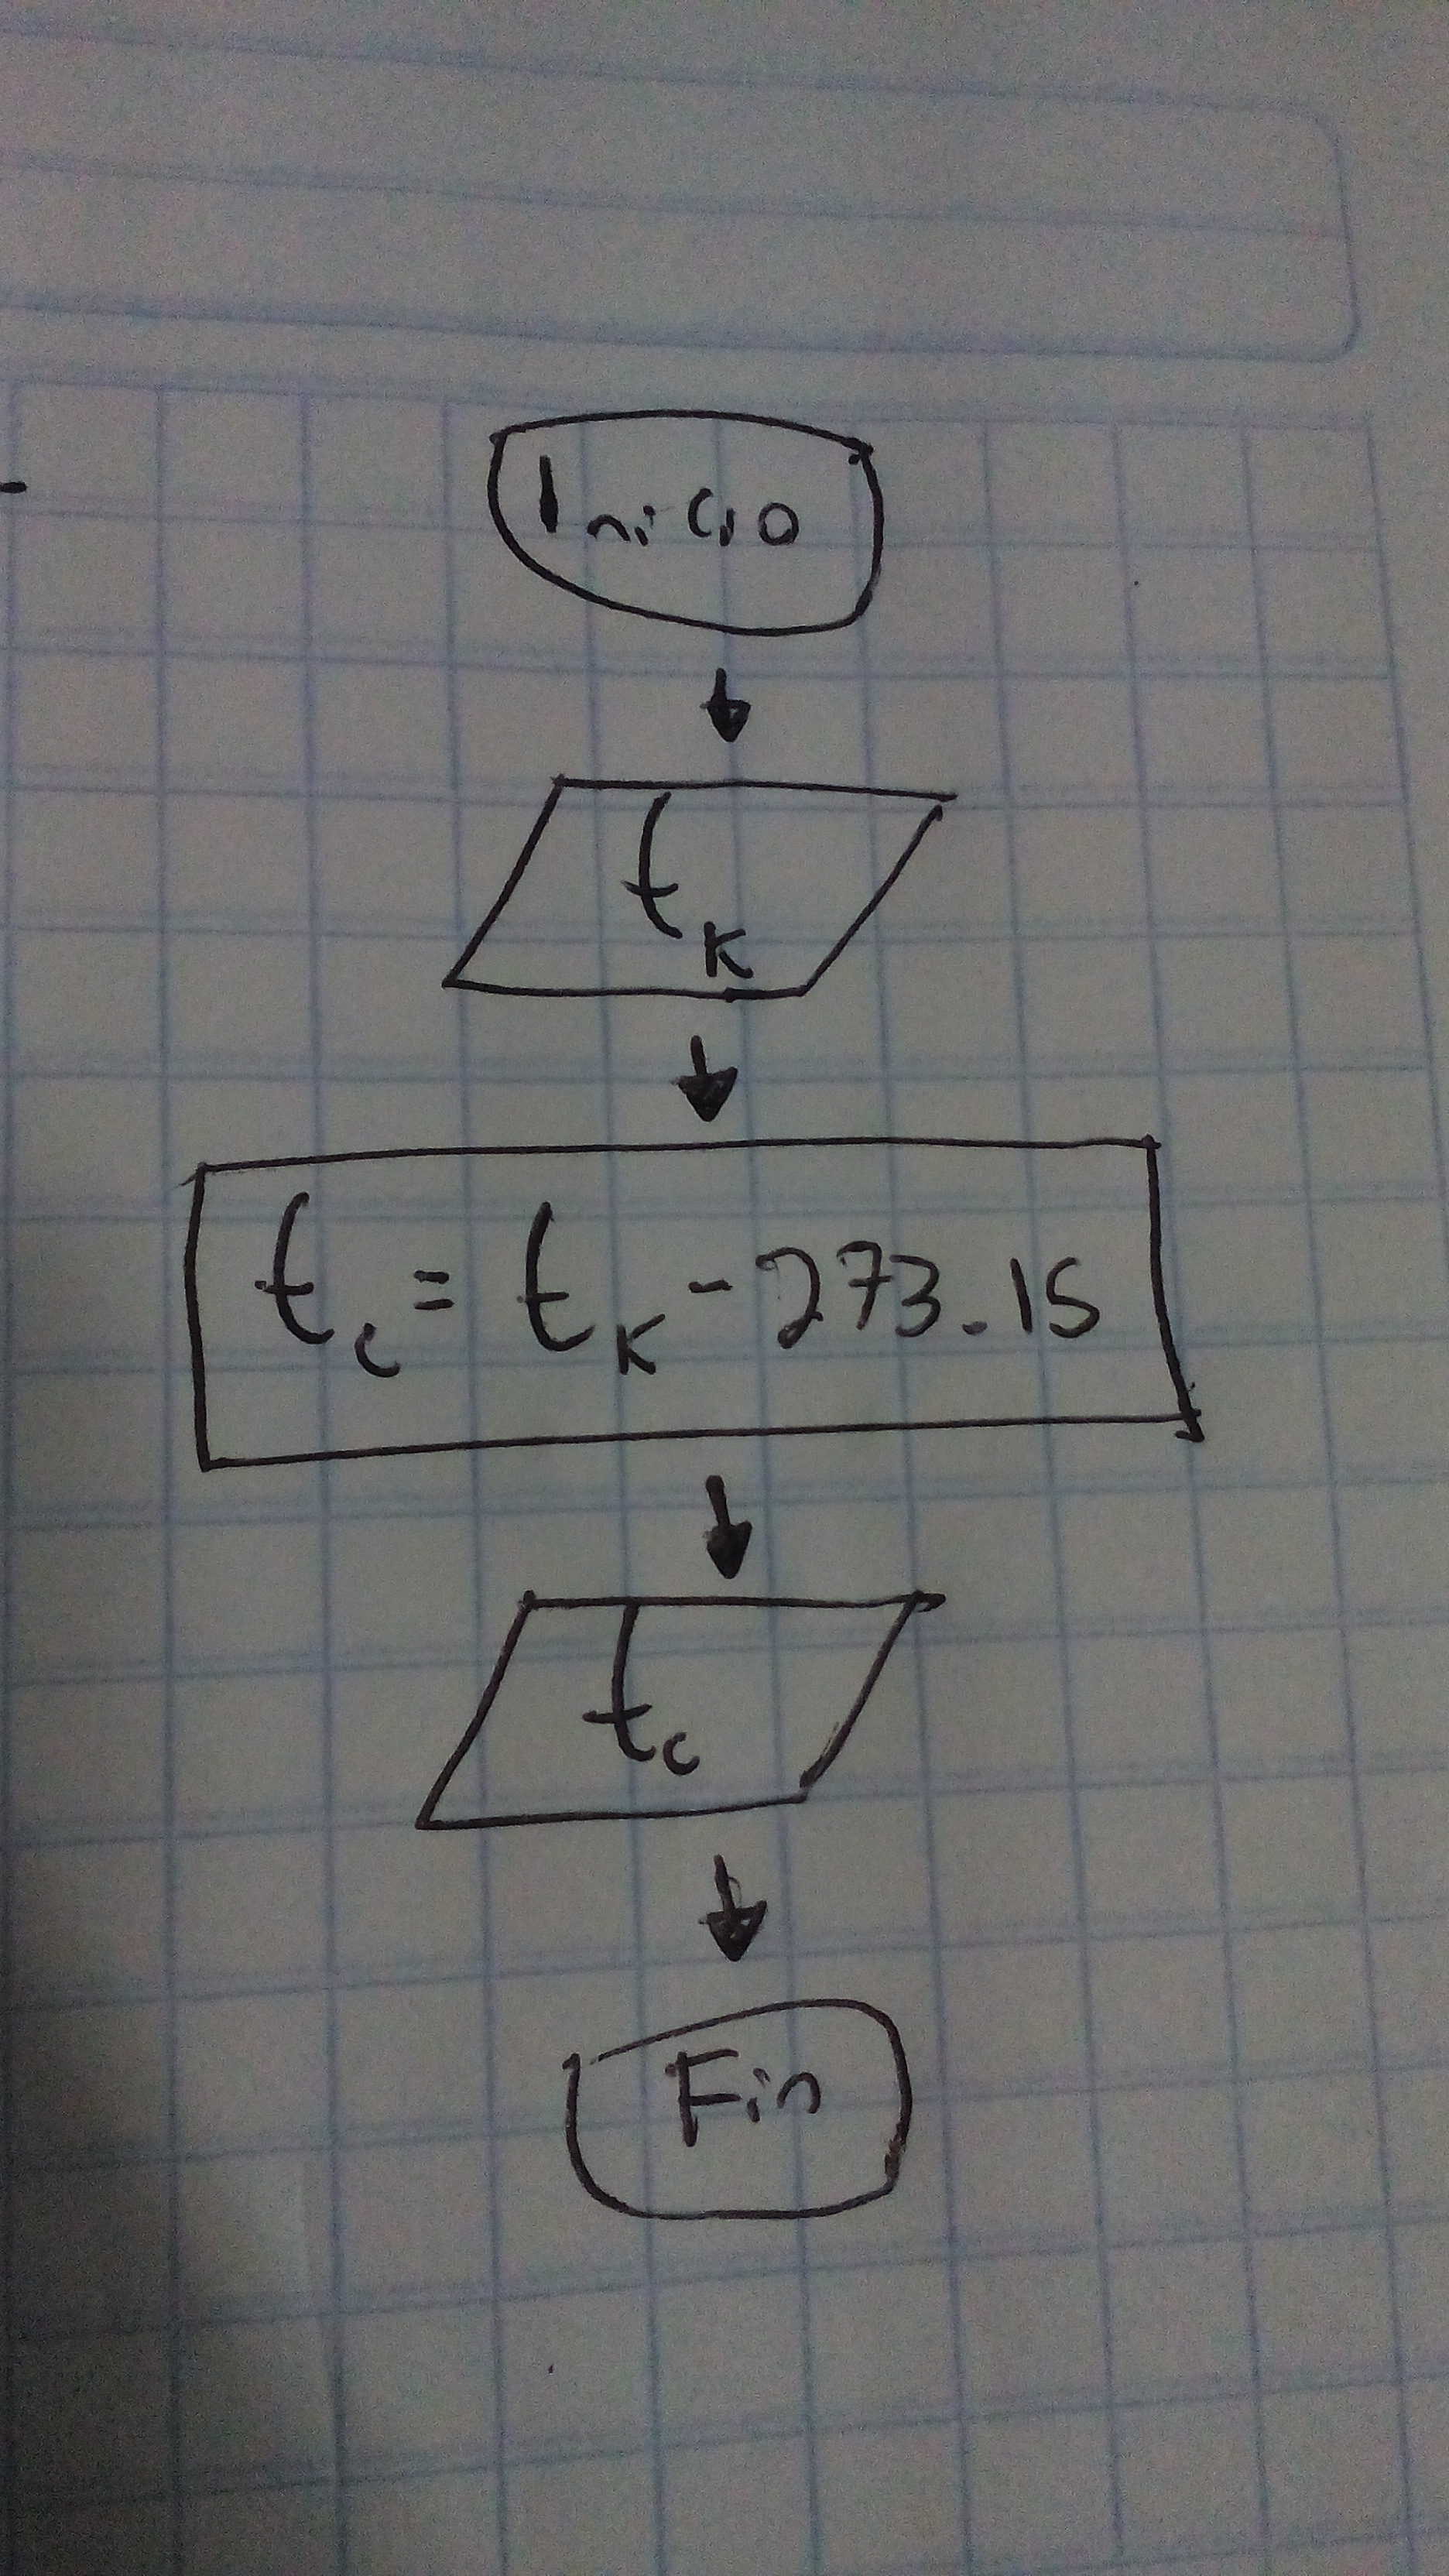 Inicio
t_K
t_c = t_K - 273.15
t_c
Fin